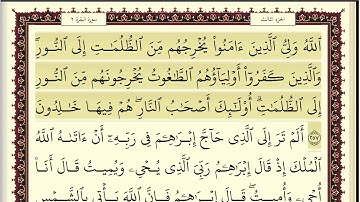 الجزء الثالث سورة البقرة ٢
ٱللَّهُ وَلِيُّ ٱلَّذِينَ ءَامَنُوا۟ يُخْرِجُهُم مِّنَ ٱلظُّلُمَـٰتِ إِلَى ٱلنُّورِ ۖ
وَٱلَّذِينَ كَفَرُوٓا۟ أَوْلِيَآؤُهُمُ ٱلطَّـٰغُوتُ يُخْرِجُونَهُم مِّنَ ٱلنُّورِ
إِلَى ٱلظُّلُمَـٰتِ ۗ أُو۟لَـٰٓئِكَ أَصْحَـٰبُ ٱلنَّارِ ۖ هُمْ فِيهَا خَـٰلِدُونَ
٢٥٧ أَلَمْ تَرَ إِلَى ٱلَّذِى حَآجَّ إِبْرَٰهِـۧمَ فِى رَبِّهِۦٓ أَنْ ءَاتَىٰهُ ٱللَّهُ
ٱلْمُلْكَ إِذْ قَالَ إِبْرَٰهِـۧمُ رَبِّىَ ٱلَّذِى يُحْىِۦ وَيُمِيتُ قَالَ أَنَا۠
أُحْىِۦ وَأُمِيتُ ۖ قَالَ إِبْرَٰهِـۧمُ فَإِنَّ ٱللَّهَ يَأْتِى بِٱلشَّمْسِ